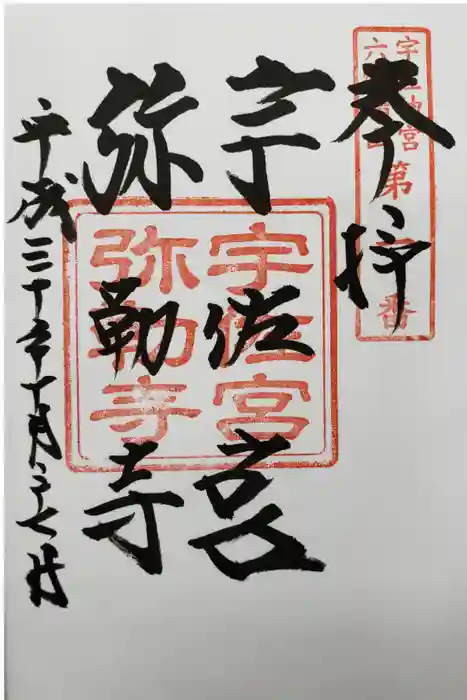 奉拝
宇佐宮
弥勒寺
平成三十年十月二十七日
宇佐神宮
六
第
番
宇佐宮
弥勒寺